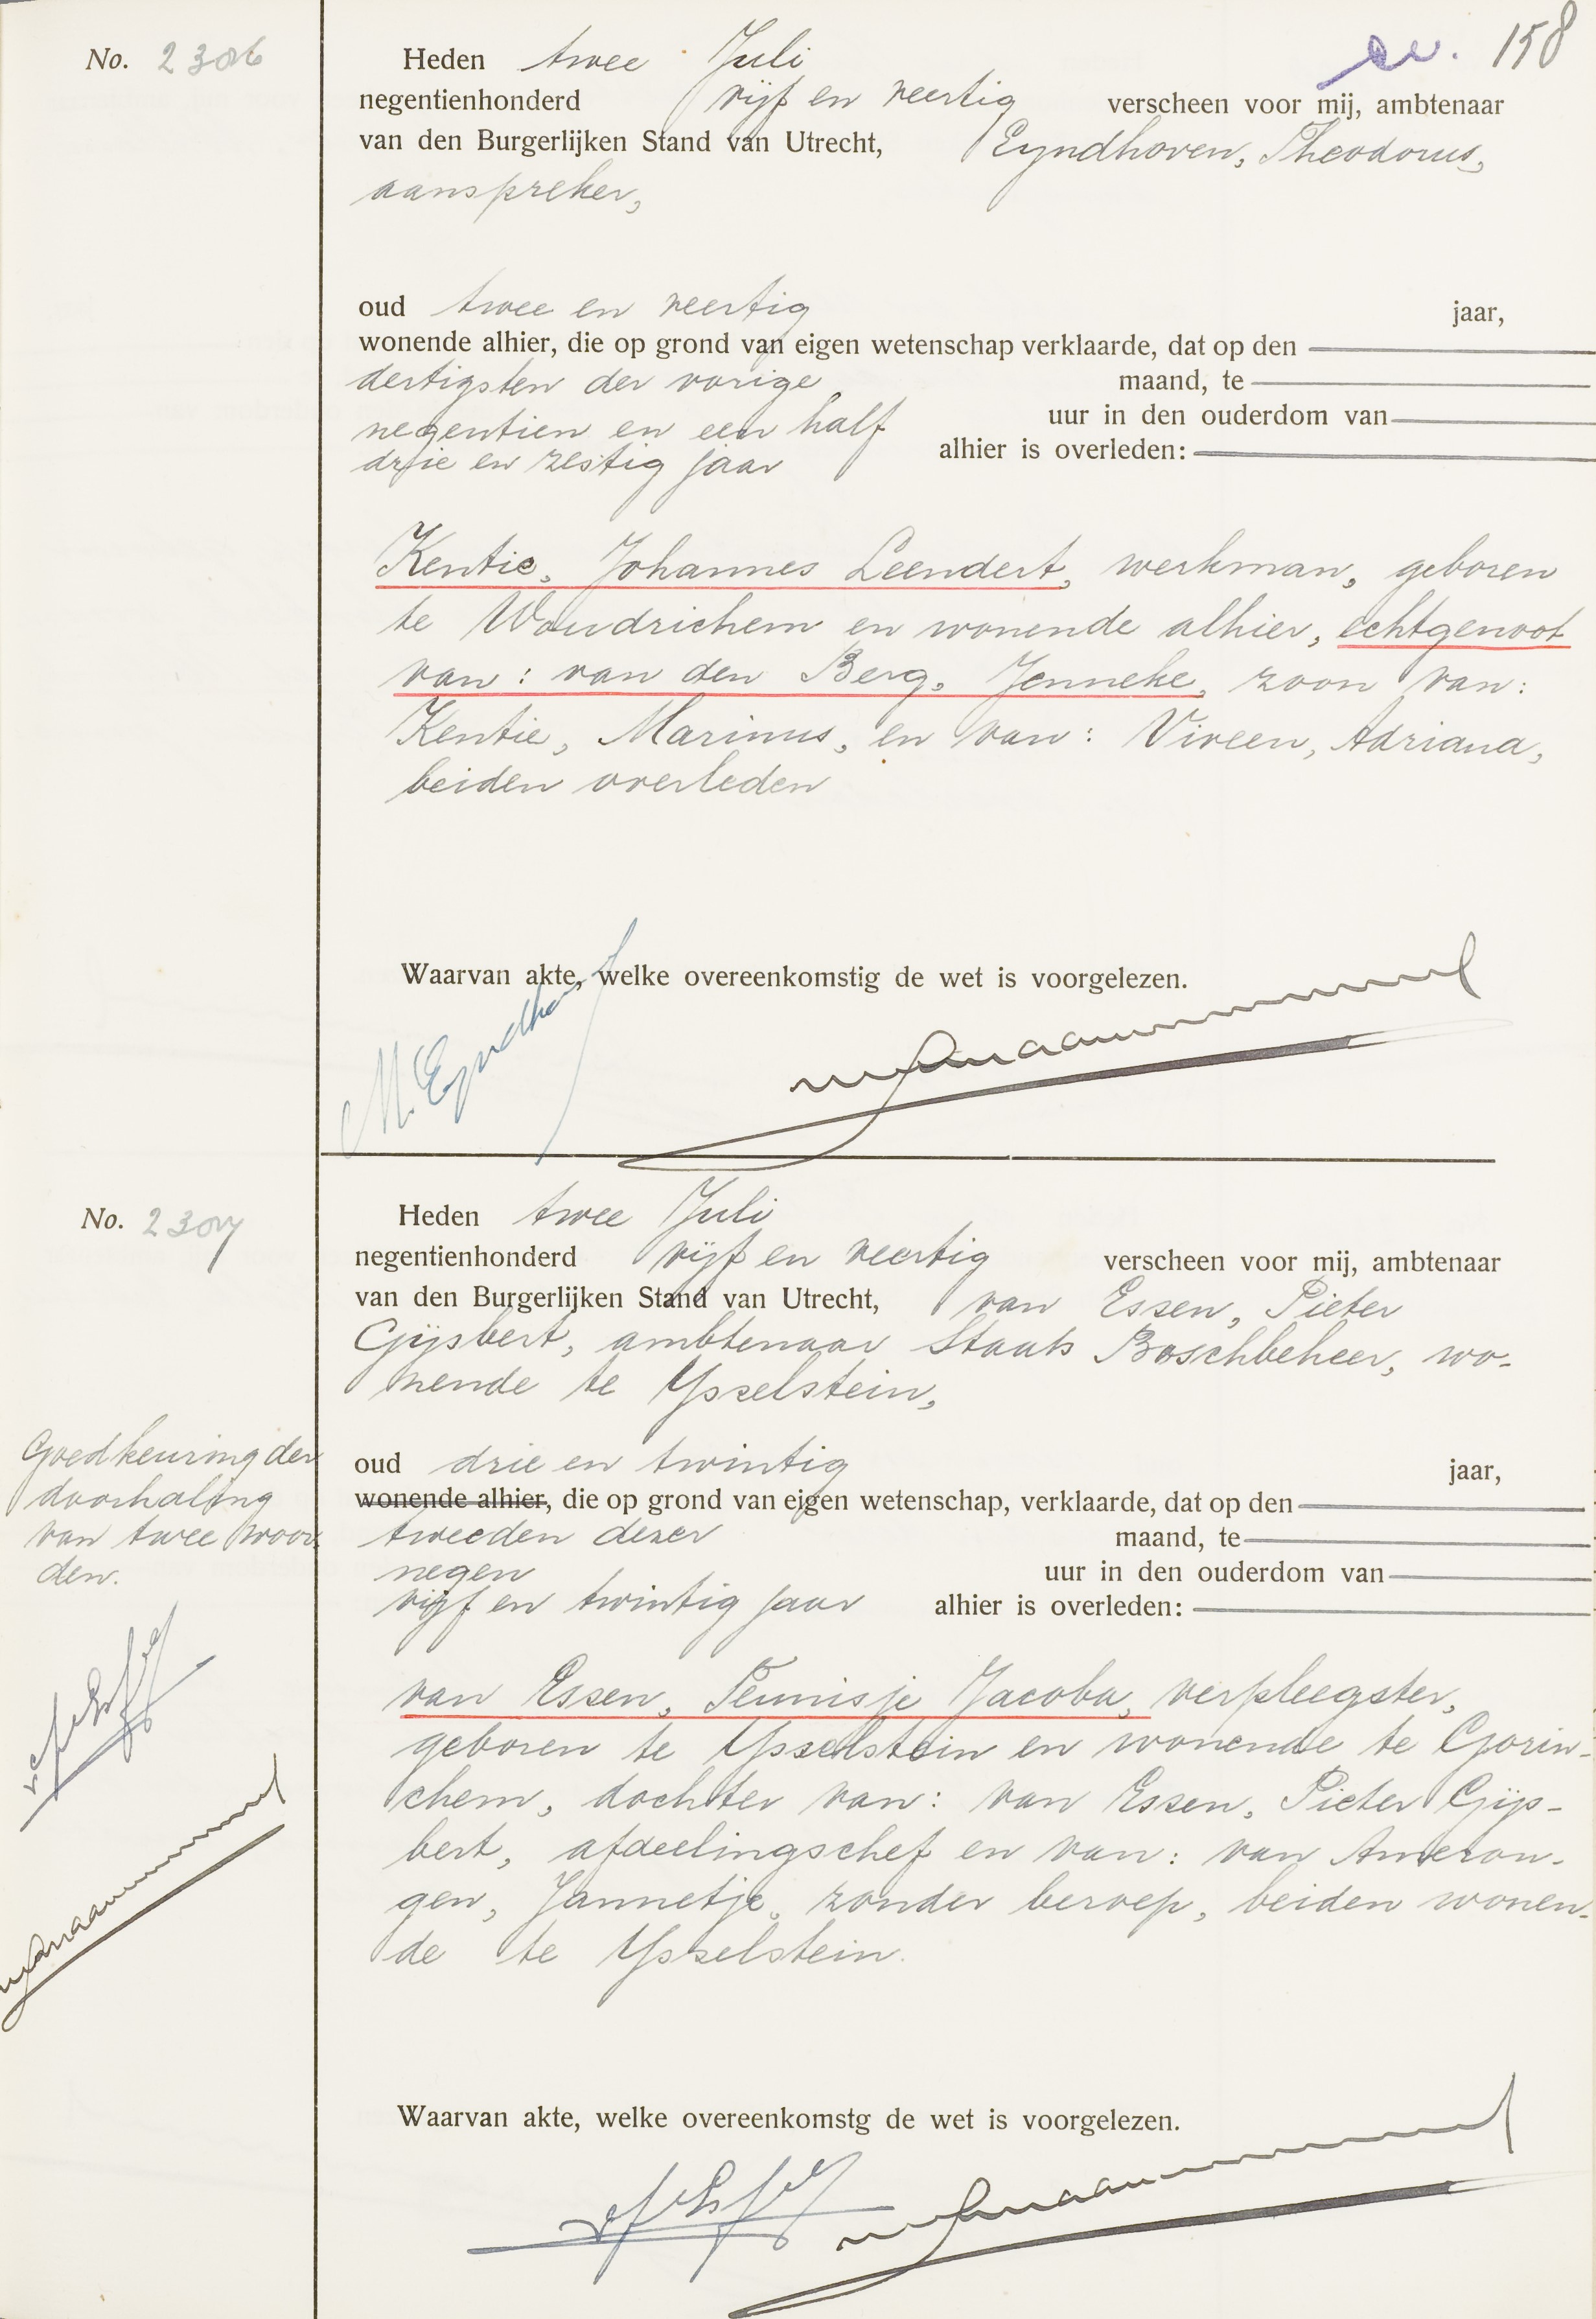 No. 2306
158
Heden twee Juli
negentienhonderd vijf en veertig verscheen voor mij, ambtenaar
van den Burgerlijken Stand van Utrecht, Eyndhoven, Theodorus,
aanspreker,
oud twee en veertig jaar,
wonende alhier, die op grond van eigen wetenschap verklaarde, dat op den
dertigsten der vorige maand, te
negentien en een half uur in den ouderdom van
drie en zestig jaar alhier is overleden:
Kentie, Johannes Leendert, werkman, geboren
te Woudrichem en wonende alhier, echtgenoot
van: van den Berg, Jenneke, zoon van:
Kentie, Marinus, en van: Viveen, Adriana,
beiden overleden
Waarvan akte, welke overeenkomstig de wet is voorgelezen.
No. 2307
Heden twee Juli
negentienhonderd vijf en veertig verscheen voor mij, ambtenaar
van den Burgerlijken Stand van Utrecht, van Essen, Pieter
Gijsbert, ambtenaar Staats Boschbeheer, wo-
nende te Ysselstein,
Goedkeuring der
doorhaling
van twee woor
den.
oud drie en twintig jaar,
wonende alhier, die op grond van eigen wetenschap, verklaarde, dat op den
tweeden dezer maand, te
negen uur in den ouderdom van
vijf en twintig jaar alhier is overleden:
van Essen, Teunisje Jacoba, verpleegster,
geboren te Ysselstein en wonende te Gorin-
chem, dochter van: van Essen, Pieter Gijs-
bert, afdeelingschef en van: van Ameron-
gen, Jannetje, zonder beroep, beiden wonen-
de te Ysselstein.
Waarvan akte, welke overeenkomstg de wet is voorgelezen.